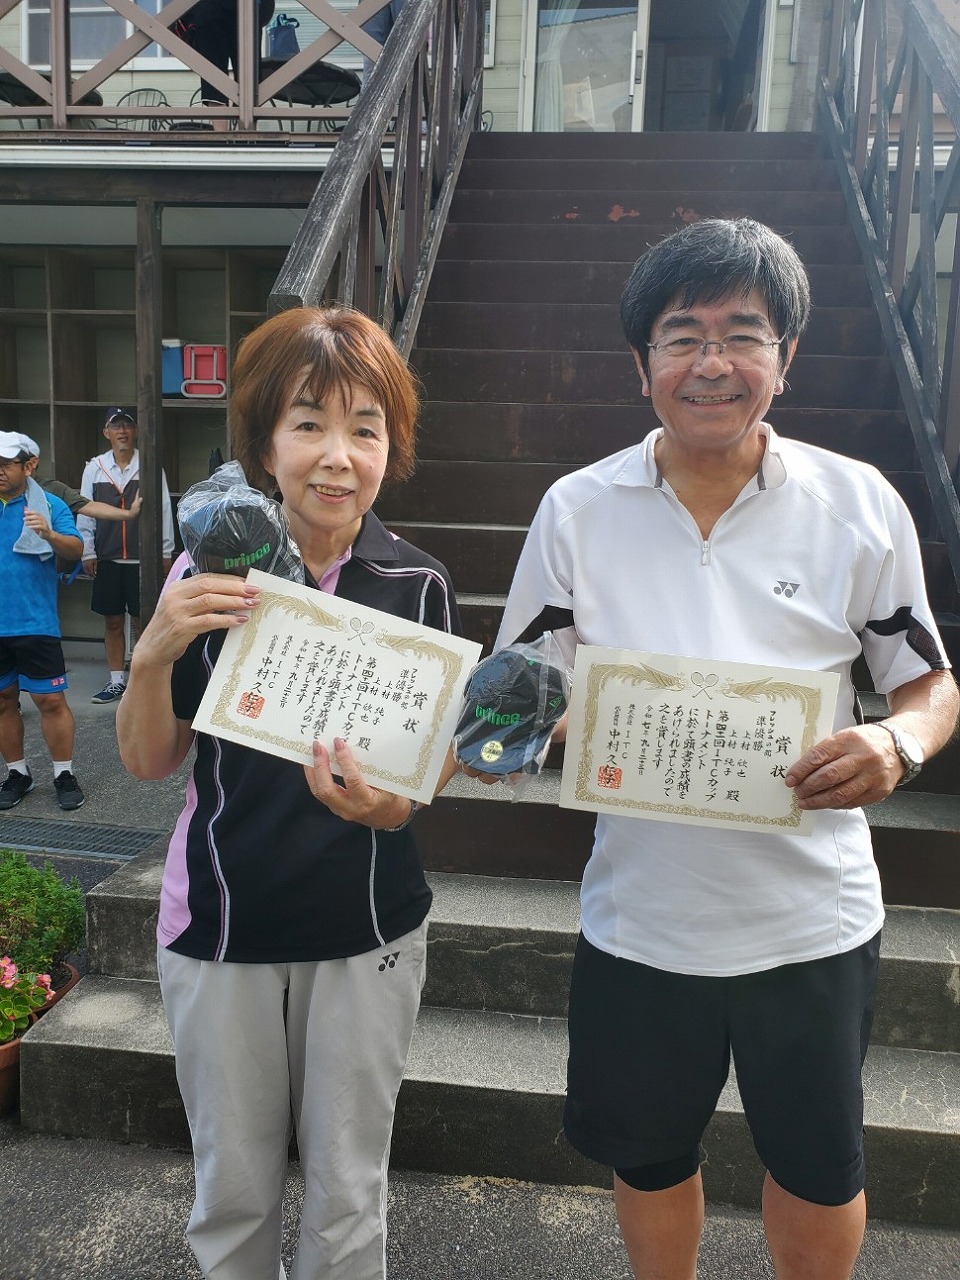 prince
賞状
フレッシュの部
準優勝
上村 純子
上村 欣也 殿
第四十回ITCカップ
トーナメント
に於て頭書の成績を
あげられましたので
之を賞します
令和七年九月二十三日
株式会社 ITC
代表取締役 中村久仁子
prince
賞状
フレッシュの部
準優勝
上村 欣也
上村 純子 殿
第四十回ITCカップ
トーナメント
に於て頭書の成績を
あげられましたので
之を賞します
令和七年九月二十三日
株式会社 ITC
代表取締役 中村久仁子